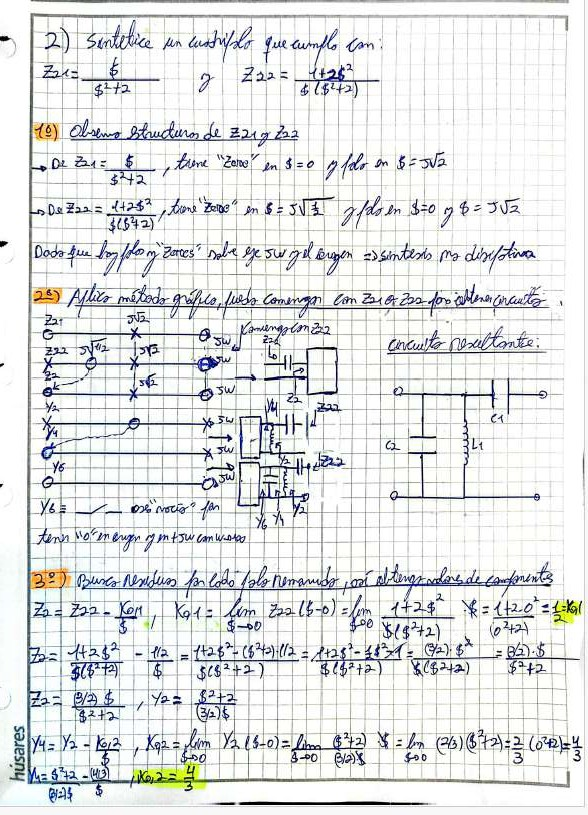 2) Sintetice un cuadripolo que cumpla con:
Z21 = $ / ($²+2) y Z22 = (1+2$²) / ($($²+2))
1º) Observo estructuras de Z21 y Z22
→ De Z21 = $ / ($²+2), tiene "Zeros" en $=0 y polo en $=J√2
→ De Z22 = (1+2$²) / ($($²+2)), tiene "Zeros" en $=J√(1/2) y polo en $=0 y $=J√2
Dado que hay polos y "Zeros" sobre eje JW y el origen => síntesis no disipativa
2º) Aplico método gráfico, puedo comenzar con Z21 o Z22 para obtener circuito
Z21 J√2 JW Comienzo con Z22
Z22 J√1/2 J√2 JW Z22
Z2 J√2 JW Z2
circuito resultante:
Y2 JW Y4 Z22
Y4 JW Y2 Z22
Y6 JW Y6 Y4 Y2
C1
C2 L1
Y6 =
tener "0" en origen y en +JW
3º) Busco residuos por cada polo removido, así obtengo valores de componentes
Z2 = Z22 - K0,1/$, K0,1 = lim $→0 Z22 ($-0) = lim $→0 (1+2$²) / ($($²+2)) $ = (1+2.0²) / (0²+2) = 1/2 = K0,1
Z2 = (1+2$²) / ($($²+2)) - (1/2)/$ = (1+2$² - ($²+2).1/2) / ($($²+2)) = (1+2$² - 1/2$² - 1) / ($($²+2)) = (3/2).$² / ($($²+2)) = (3/2).$ / ($²+2)
Z2 = (3/2)$ / ($²+2), Y2 = ($²+2) / ((3/2)$)
Y4 = Y2 - K0,2/$, K0,2 = lim $→0 Y2 ($-0) = lim $→0 ($²+2) / ((3/2)$) $ = lim $→0 (2/3)($²+2) = 2/3 (0²+2) = 4/3
Y4 = ($²+2) / ((3/2)$) - (4/3)/$, K0,2 = 4/3
húsares